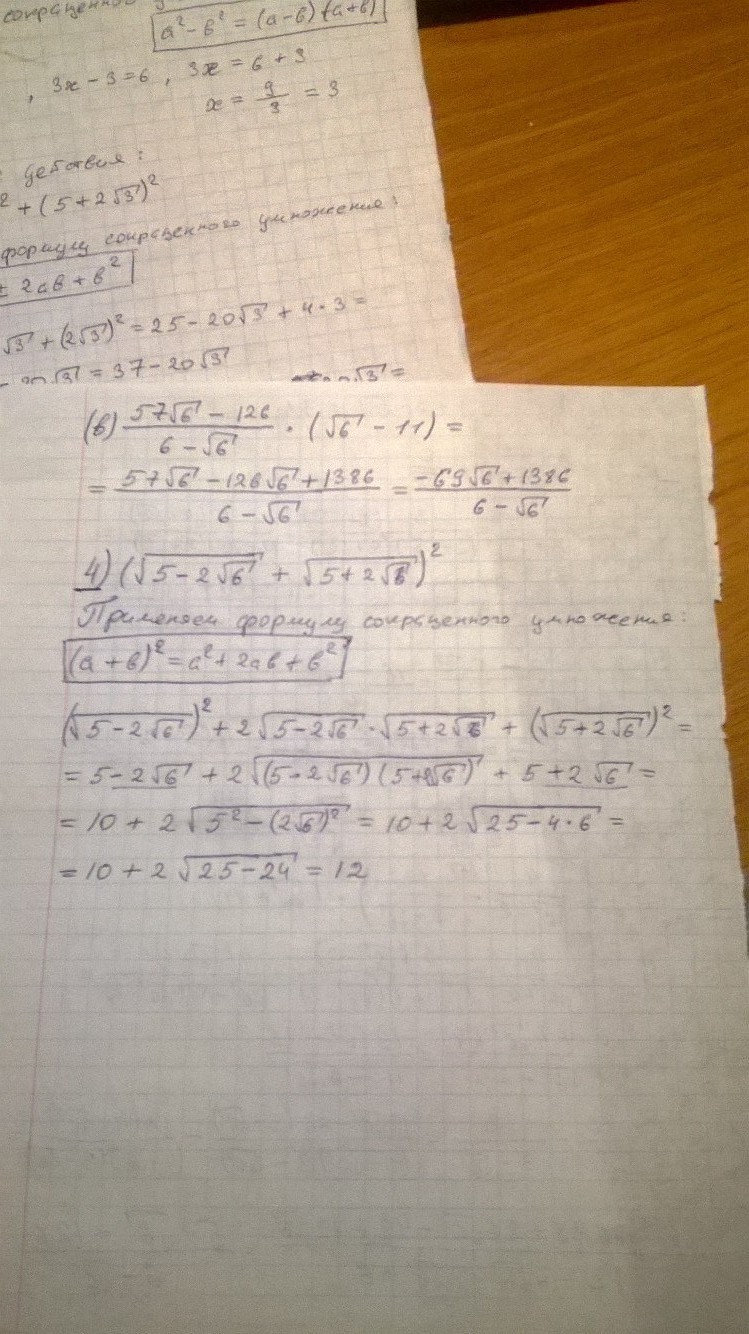 сокращенного
a² - b² = (a-b)(a+b)
, 3x - 3 = 6 , 3x = 6 + 3
x = 9/3 = 3
действия:
² + (5 + 2√3)²
формулу сокращенного умножения:
± 2ab + b²
√3 + (2√3)² = 25 - 20√3 + 4·3 =
- 20√3 = 37 - 20√3
√3 =
(в) (57√6 - 126)/(6 - √6) · (√6 - 11) =
= (57√6 - 126√6 + 1386)/(6 - √6) = (-69√6 + 1386)/(6 - √6)
4) (√(5 - 2√6) + √(5 + 2√6))²
Применяем формулу сокращенного умножения:
(a + b)² = a² + 2ab + b²
(√(5 - 2√6))² + 2√(5 - 2√6) · √(5 + 2√6) + (√(5 + 2√6))² =
= 5 - 2√6 + 2√((5 - 2√6)(5 + 2√6)) + 5 + 2√6 =
= 10 + 2√(5² - (2√6)²) = 10 + 2√(25 - 4·6) =
= 10 + 2√(25 - 24) = 12